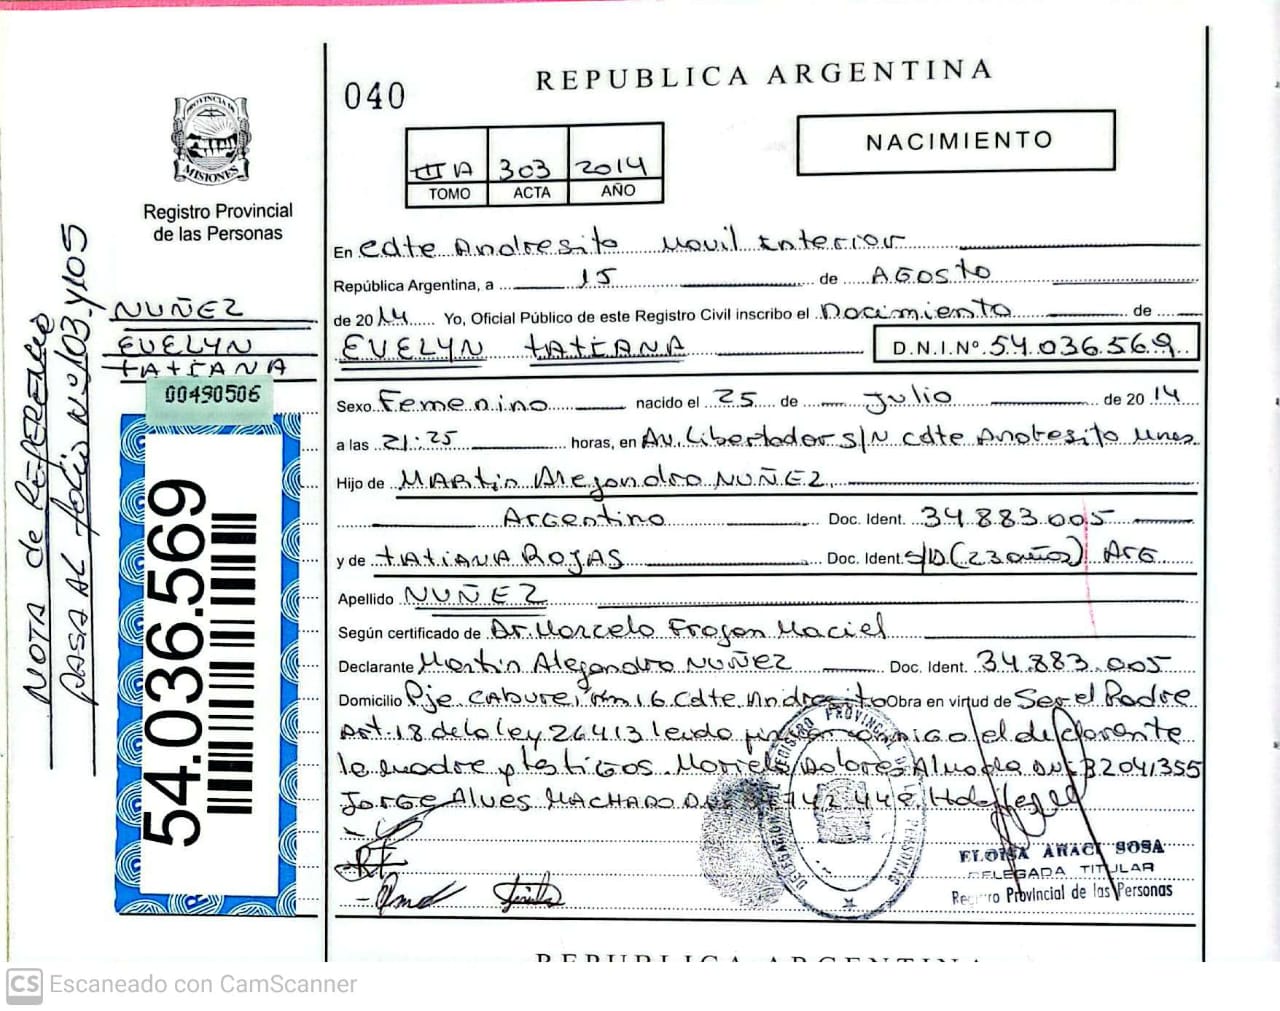 REPUBLICA ARGENTINA
040
NACIMIENTO
III A 303 2014
TOMO ACTA AÑO
PROVINCIA DE
MISIONES
Registro Provincial
de las Personas
En Cdte Andresito Movil Interior
República Argentina, a 15 de Agosto
de 2014 Yo, Oficial Público de este Registro Civil inscribo el Nacimiento de
EVELYN TATIANA D.N.I.Nº 54.036.569
Sexo Femenino nacido el 25 de Julio de 2014
a las 21:25 horas, en Av. Libertador S/N Cdte Andresito Mnes
Hijo de Martin Alejandro NUÑEZ
Argentino Doc. Ident. 34.883.005
y de TATIANA ROJAS Doc. Ident. S/D (23 años) Arg
Apellido NUÑEZ
Según certificado de Dr. Marcelo Maciel
Declarante Martin Alejandro NUÑEZ Doc. Ident. 34.883.005
Domicilio Pje. Cabure, Km 16 Cdte Andresito Obra en virtud de Ser el Padre
Art. 18 de la ley 26413 leido el declarante
la madre y testigos. Dolores 32041355
Jorge Alves MACHADO
ELOISA ARACI SOSA
DELEGADA TITULAR
Registro Provincial de las Personas
NUÑEZ
EVELYN
TATIANA
00490506
54.036.569
NOTA de REFERENCIA
PASA AL folio Nº 103 y 105
REPUBLICA ARGENTINA
CS Escaneado con CamScanner